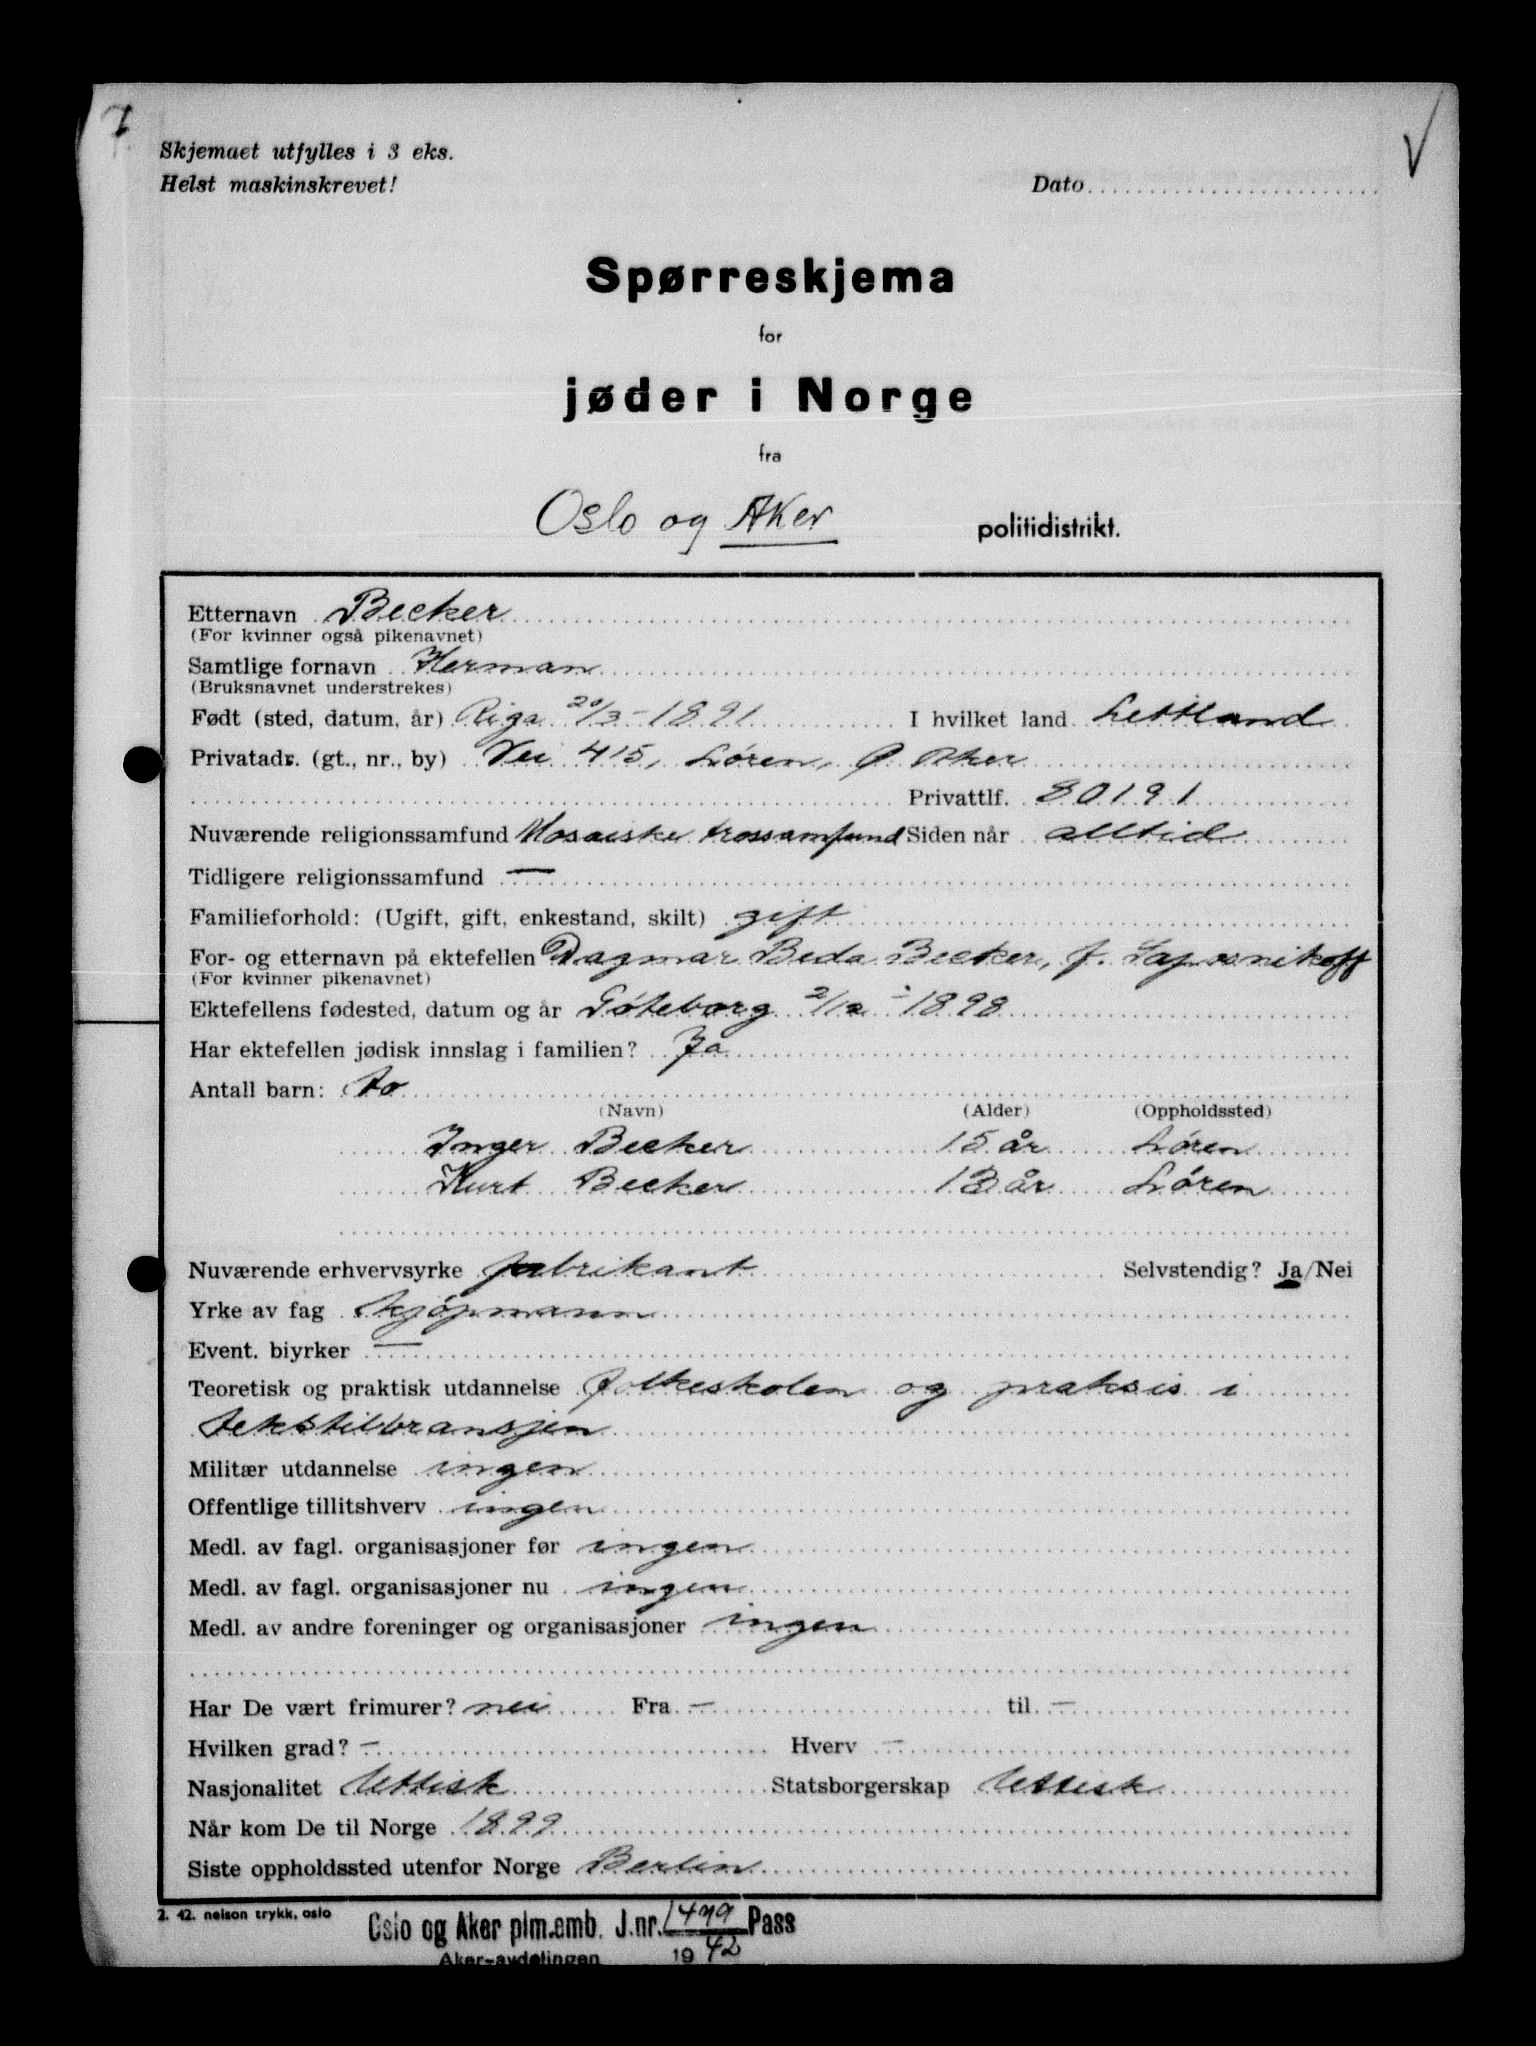 Skjemaet utfylles i 3 eks.
Helst maskinskrevet!
Dato
Spørreskjema
for
jøder i Norge
fra
Oslo og Aker politidistrikt.
Etternavn Becker
(For kvinner også pikenavnet)
Samtlige fornavn Herman
(Bruksnavnet understrekes)
Født (sted, datum, år) Riga 20/3-1891 I hvilket land Lettland
Privatadr. (gt., nr., by) Vei 415, Løren, Ø. Aker
Privattlf. 80191
Nuværende religionssamfund Mosaiske trossamfund Siden når alltid
Tidligere religionssamfund —
Familieforhold: (Ugift, gift, enkestand, skilt) gift
For- og etternavn på ektefellen Dagmar Beda Becker, f.
(For kvinner pikenavnet)
Ektefellens fødested, datum og år Gøteborg 2/12 - 1898
Har ektefellen jødisk innslag i familien? Ja
Antall barn: to
(Navn) (Alder) (Oppholdssted)
Inger Becker 15 år Løren
Kurt Becker 13 år Løren
Nuværende erhvervsyrke fabrikant Selvstendig? Ja/Nei
Yrke av fag kjøpmann
Event. biyrker —
Teoretisk og praktisk utdannelse folkeskolen og praksis i
tekstilbransjen
Militær utdannelse ingen
Offentlige tillitshverv ingen
Medl. av fagl. organisasjoner før ingen
Medl. av fagl. organisasjoner nu ingen
Medl. av andre foreninger og organisasjoner ingen
Har De vært frimurer? nei Fra — til —
Hvilken grad? — Hverv —
Nasjonalitet lettisk Statsborgerskap lettisk
Når kom De til Norge 1899
Siste oppholdssted utenfor Norge Berlin
2. 42. nelson trykk, oslo
Oslo og Aker plm.emb. J.nr. 1479 Pass
Aker-avdelingen 1942